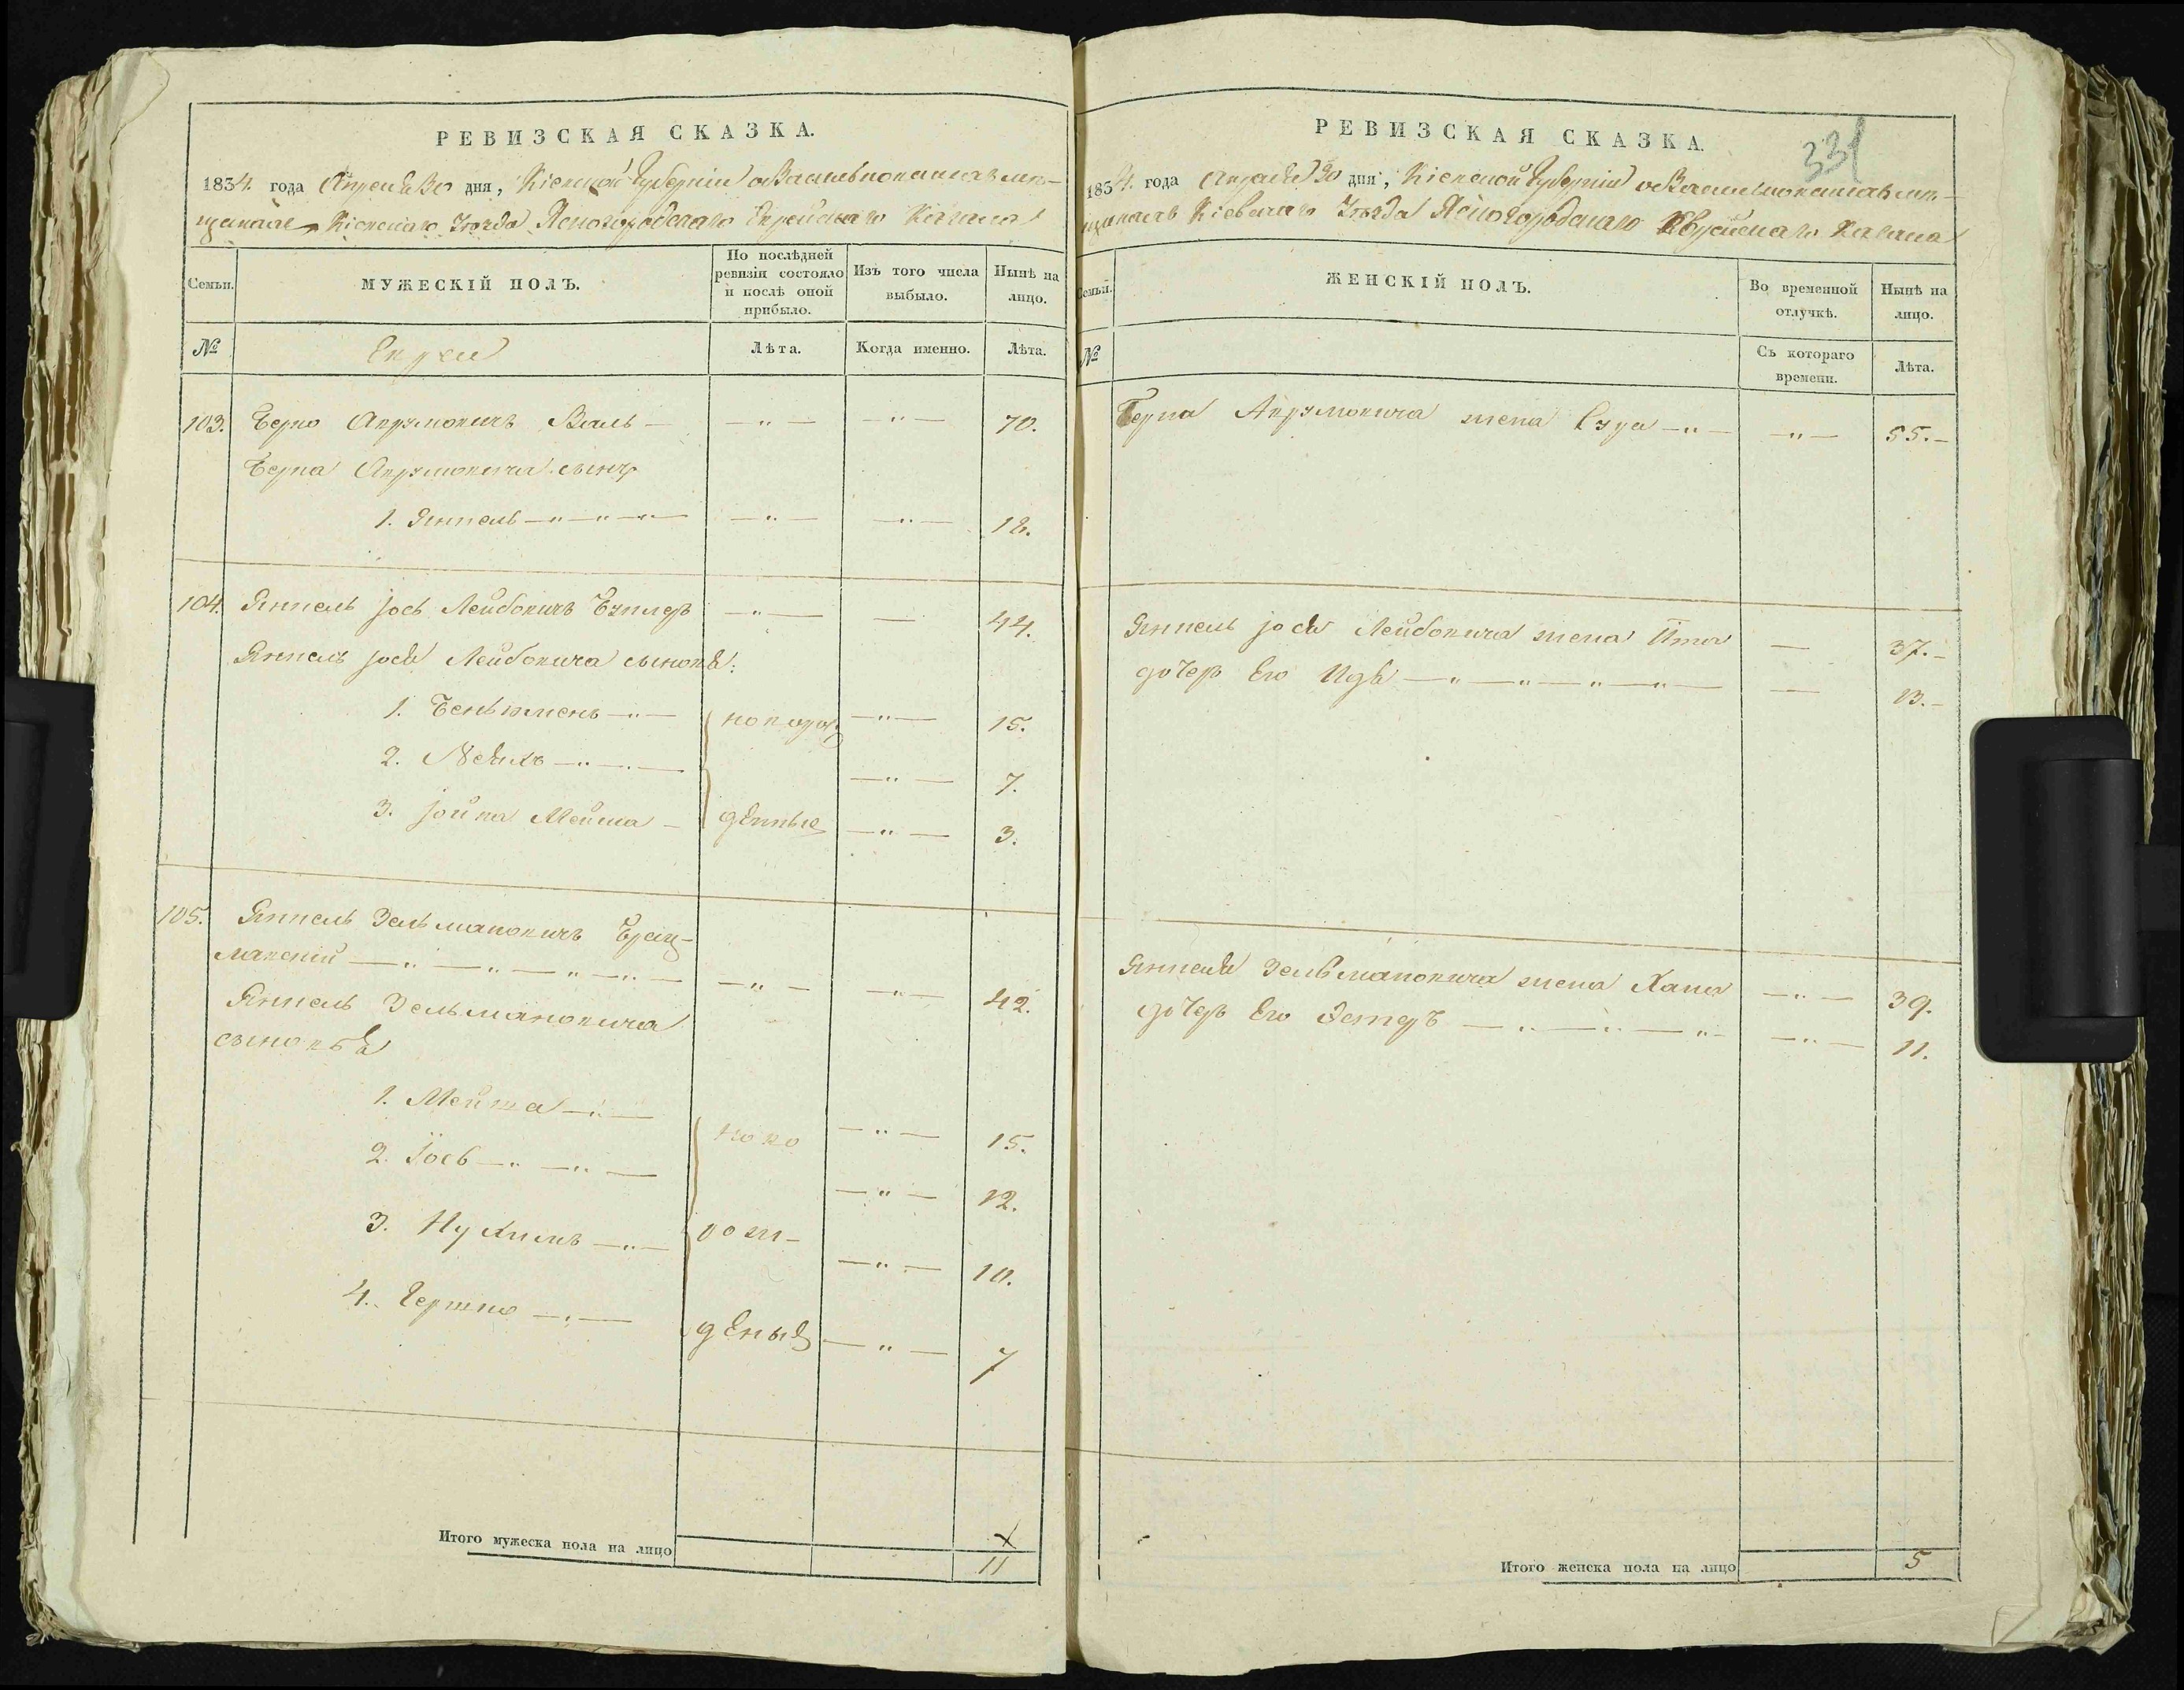 РЕВИЗСКАЯ СКАЗКА.
1834. года Апреля 30 дня, Кіевской Губерніи о Васильковскихъ мѣ-
щанахъ Кіевскаго Уѣзда Ясногородскаго Еврейскаго Кагала
Семьи.
МУЖЕСКІЙ ПОЛЪ.
По послѣдней ревизіи состояло и послѣ оной прибыло.
Изъ того числа выбыло.
Нынѣ на лицо.
№
Евреи
Лѣта.
Когда именно.
Лѣта.
103. Берко Аврумовичъ — — „ — — „ — 70.
Берка Аврумовича сынъ
1. Янкель — „ — „ — „ — — „ — — „ — 18.
104. Янкель Іось Лейбовичъ — „ — — 44.
Янкель Іося Лейбовича сыновья:
1. Беньяменъ — „ — новорож — „ — 15.
2. — „ — „ — — „ — 7.
3. Іойна Мейша — денные — „ — 3.
105. Янкель Зельмановичъ Брац-
лавскій — „ — „ — „ — „ — — „ — — „ — 42.
Янкель Зельмановича
сыновья
1. Мейша — „ — ново — „ — 15.
2. Іось — „ — „ — — „ — 12.
3. Нухимъ — „ — рож- — „ — 10.
4. Гершко — „ — деныя — „ — 7
Итого мужеска пола на лицо 11
РЕВИЗСКАЯ СКАЗКА.
331
1834. года Апреля 30 дня, Кіевской Губерніи о Васильковскихъ мѣ-
щанахъ Кіевскаго Уѣзда Ясногородскаго Еврейскаго Кагала
Семьи.
ЖЕНСКІЙ ПОЛЪ.
Во временной отлучкѣ.
Нынѣ на лицо.
№
Съ котораго времени.
Лѣта.
Берка Аврумовича жена — „ — — „ — 55. —
Янкель Іося Лейбовича жена Ита — 37. —
дочерь Его Идя — „ — „ — „ — „ — — 13. —
Янкеля Зельмановича жена Хана — „ — 39.
дочерь Его Эстеръ — „ — „ — „ — — „ — 11.
Итого женска пола на лицо 5